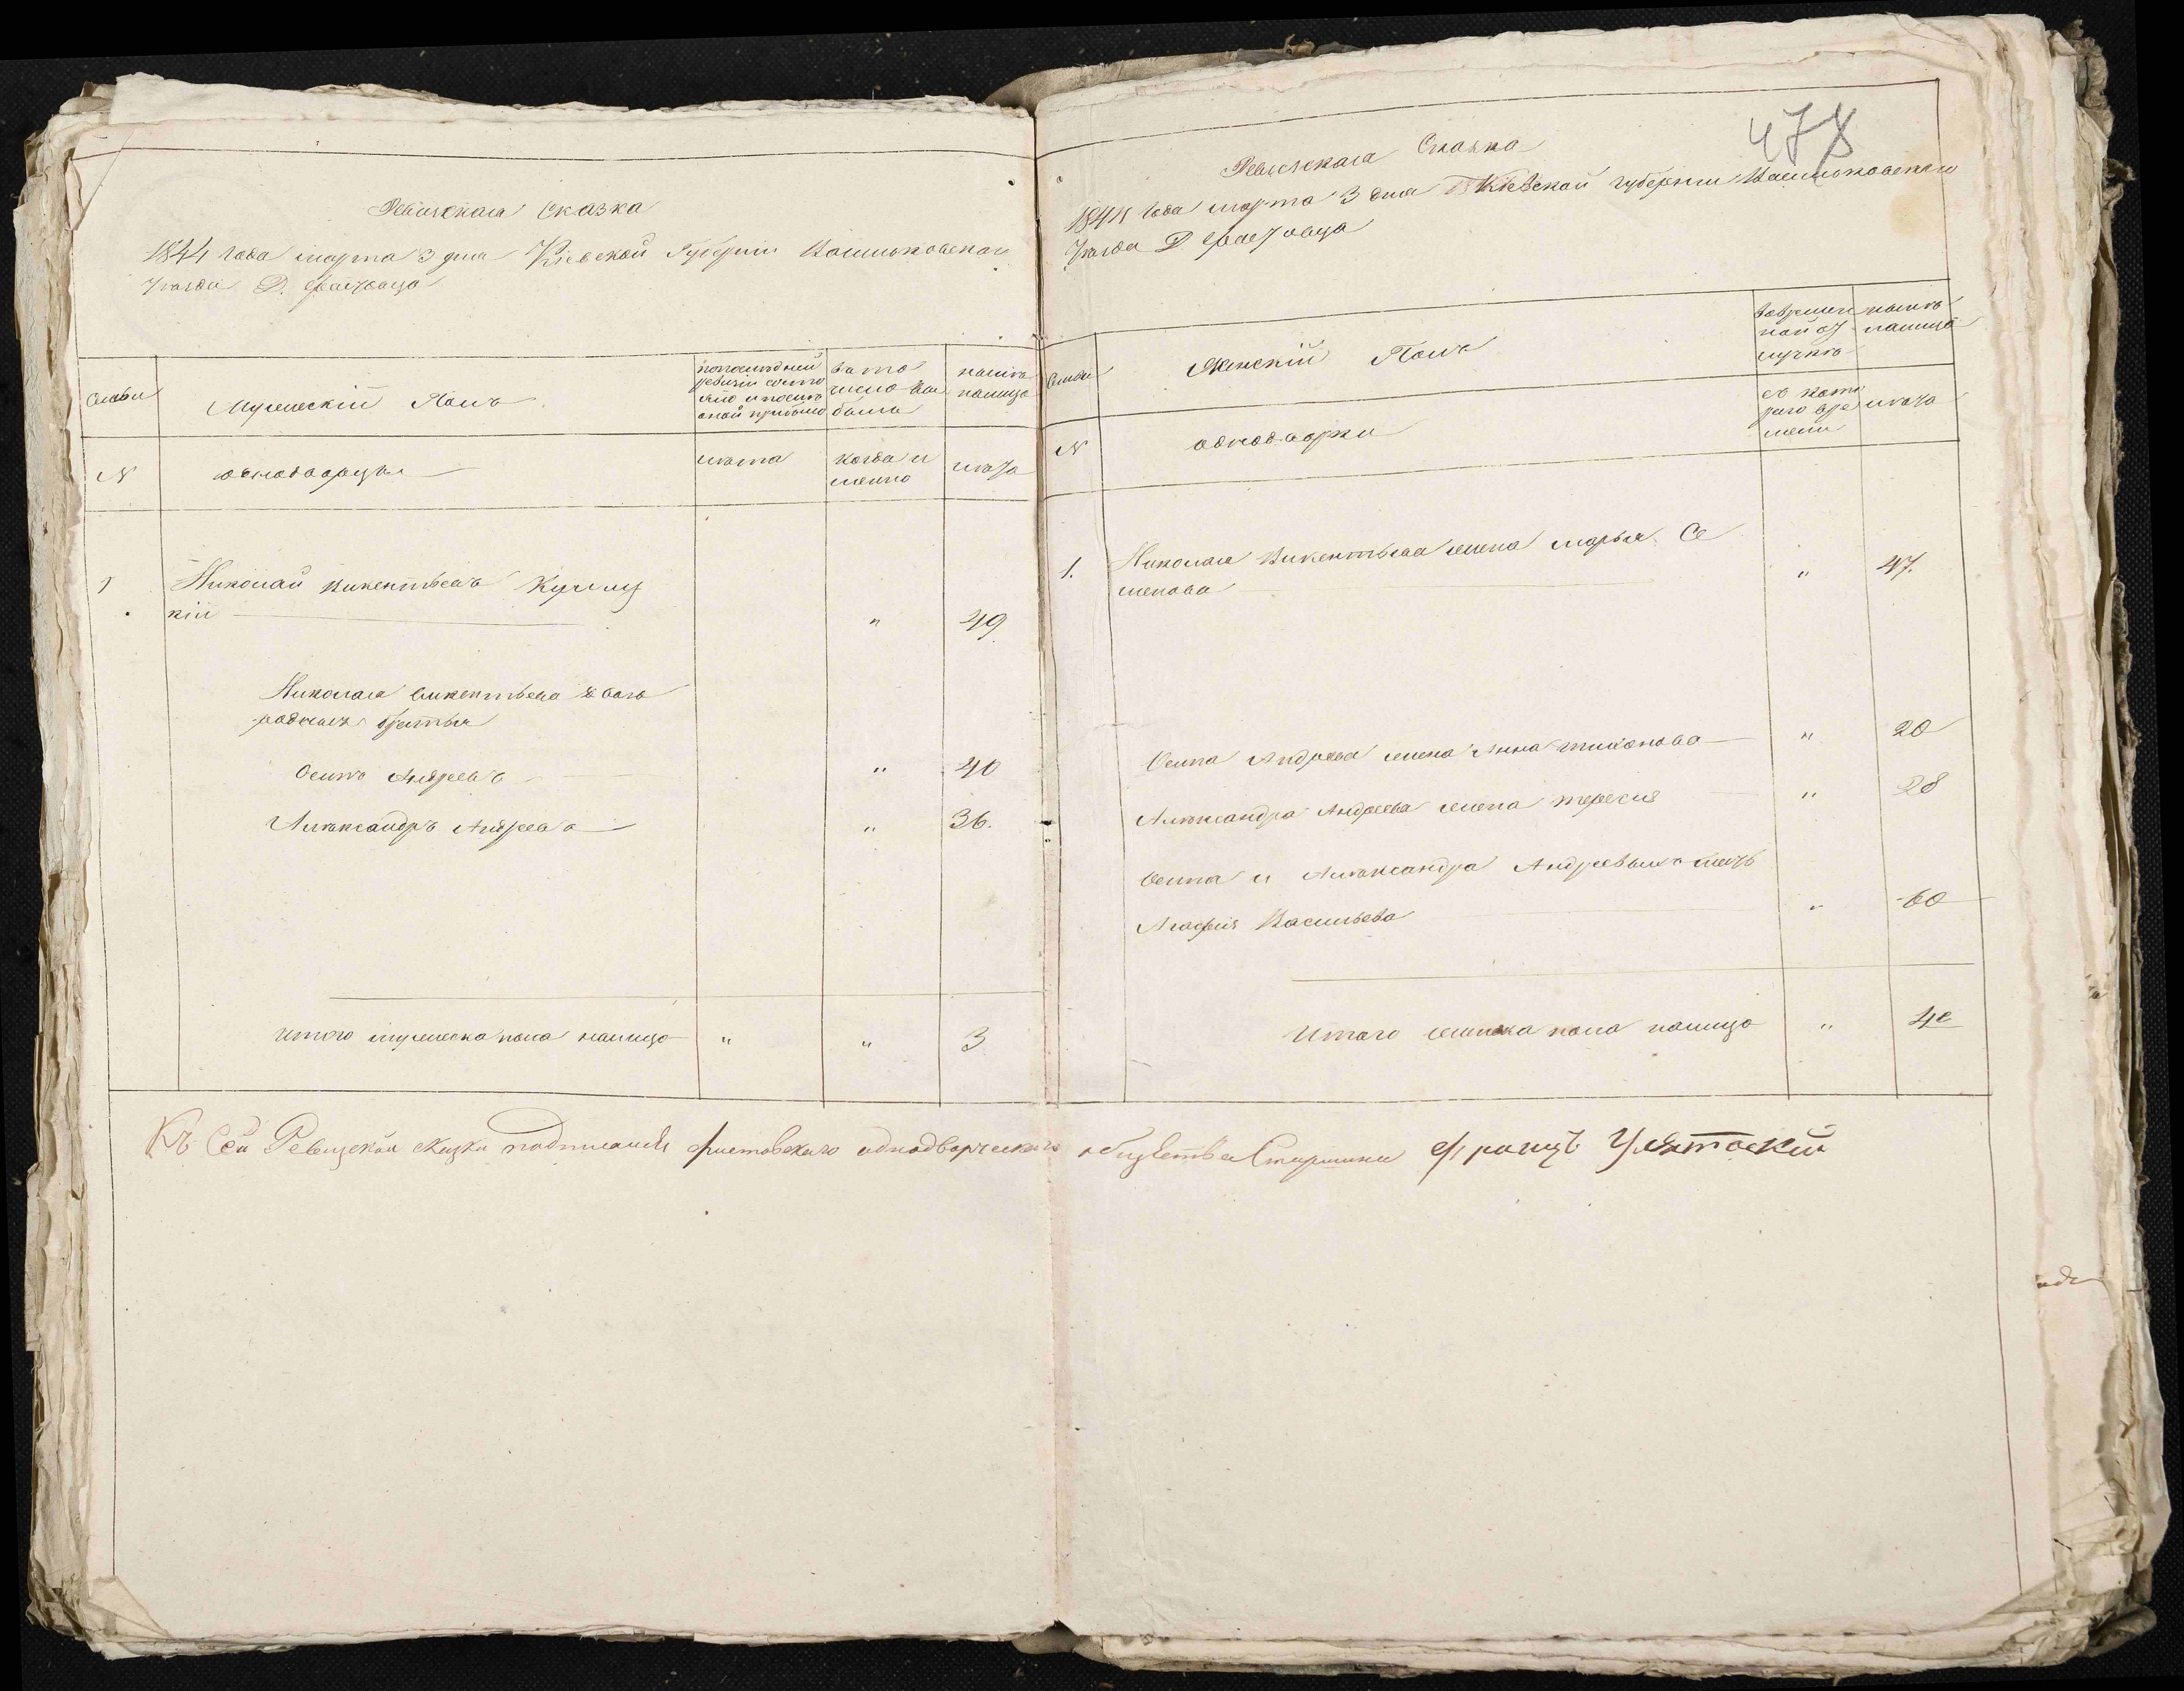 Ревизская Сказка
1844 года марта 3 дня Кіевской Губерніи Васильковскаго
Уезда Д.
Семьи
Мужескій Полъ
попоследней ревизіи состо яло и после оной прибыло
изъ того числа вы было
ныне налицо
N
однодворцы
лета
когда и менно
лета
1
Николай Викентьевъ
кій
"
49
Николая Викентьева двою
родныя братья
Осипъ Андреевъ
"
40
Александръ Андреевъ
"
36.
Итого мужеска пола налицо
"
"
3
478
Ревизская Сказка
1844 года марта 3 дня Кіевской губерніи Васильковскаго
Уезда Д
Семьи
Женскій Полъ
вовремен ной от лучке
ныне налицо
N
однодворки
съ кото раго вре мени
лета
1.
Николая Викентьева жена марья Се
менова
"
47.
Осипа Андреева жена Анна
"
20
Александра Андреева жена терезія
"
28
Осипа и Александра Андреевыхъ мать
Агафія Васильева
"
60
Итого женска пола налицо
"
4е
Къ Сей Ревизской сказки подписался однодворческаго общества Старшина Францъ